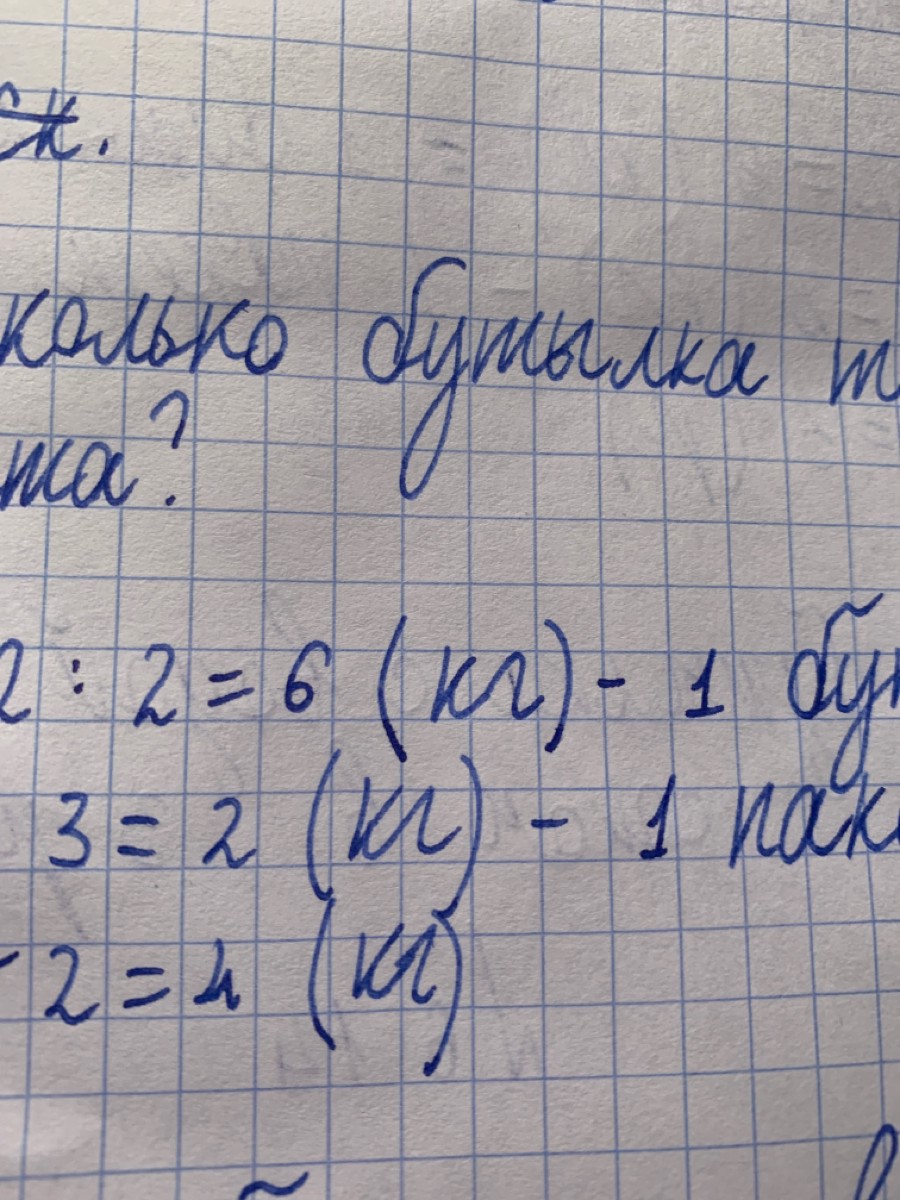 ск.
колько бутылка т
та?
2 : 2 = 6 (кг) - 1 бу
3 = 2 (кг) - 1 пак
- 2 = 4 (кг)